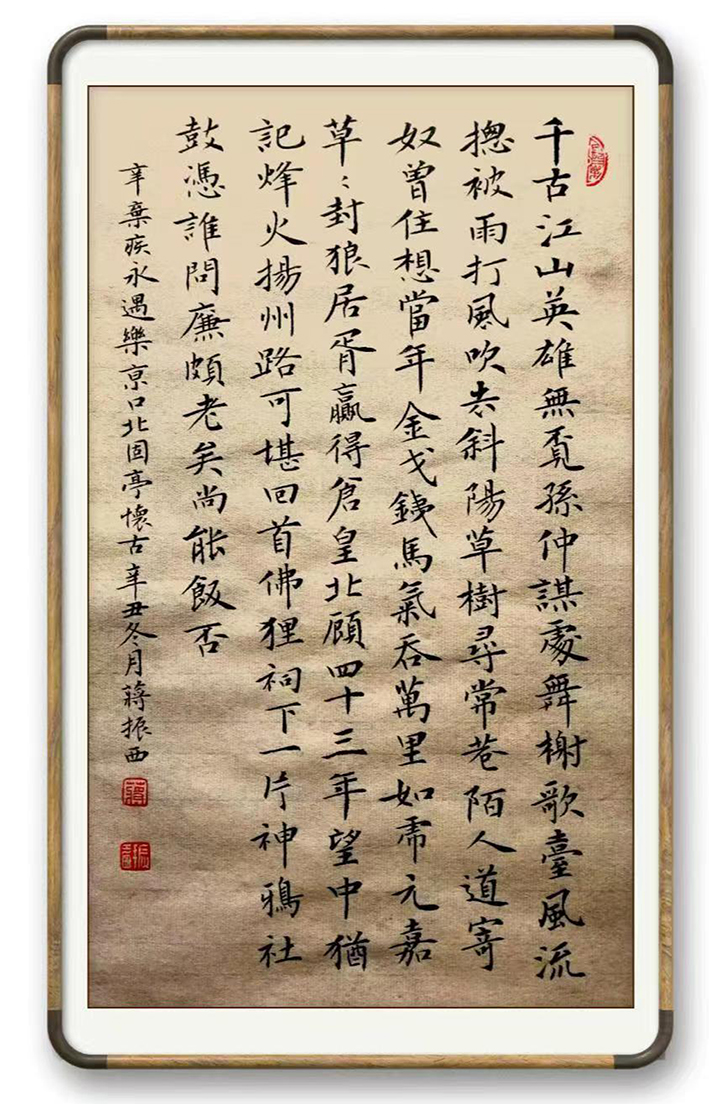 千古江山英雄無覓孫仲謀處舞榭歌臺風流
摠被雨打風吹去斜陽草樹尋常巷陌人道寄
奴曾住想當年金戈鐵馬氣吞萬里如虎元嘉
草〻封狼居胥贏得倉皇北顧四十三年望中猶
記烽火揚州路可堪回首佛狸祠下一片神鴉社
鼓憑誰問廉頗老矣尚能飯否
辛棄疾永遇樂京口北固亭懷古辛丑冬月蔣振西